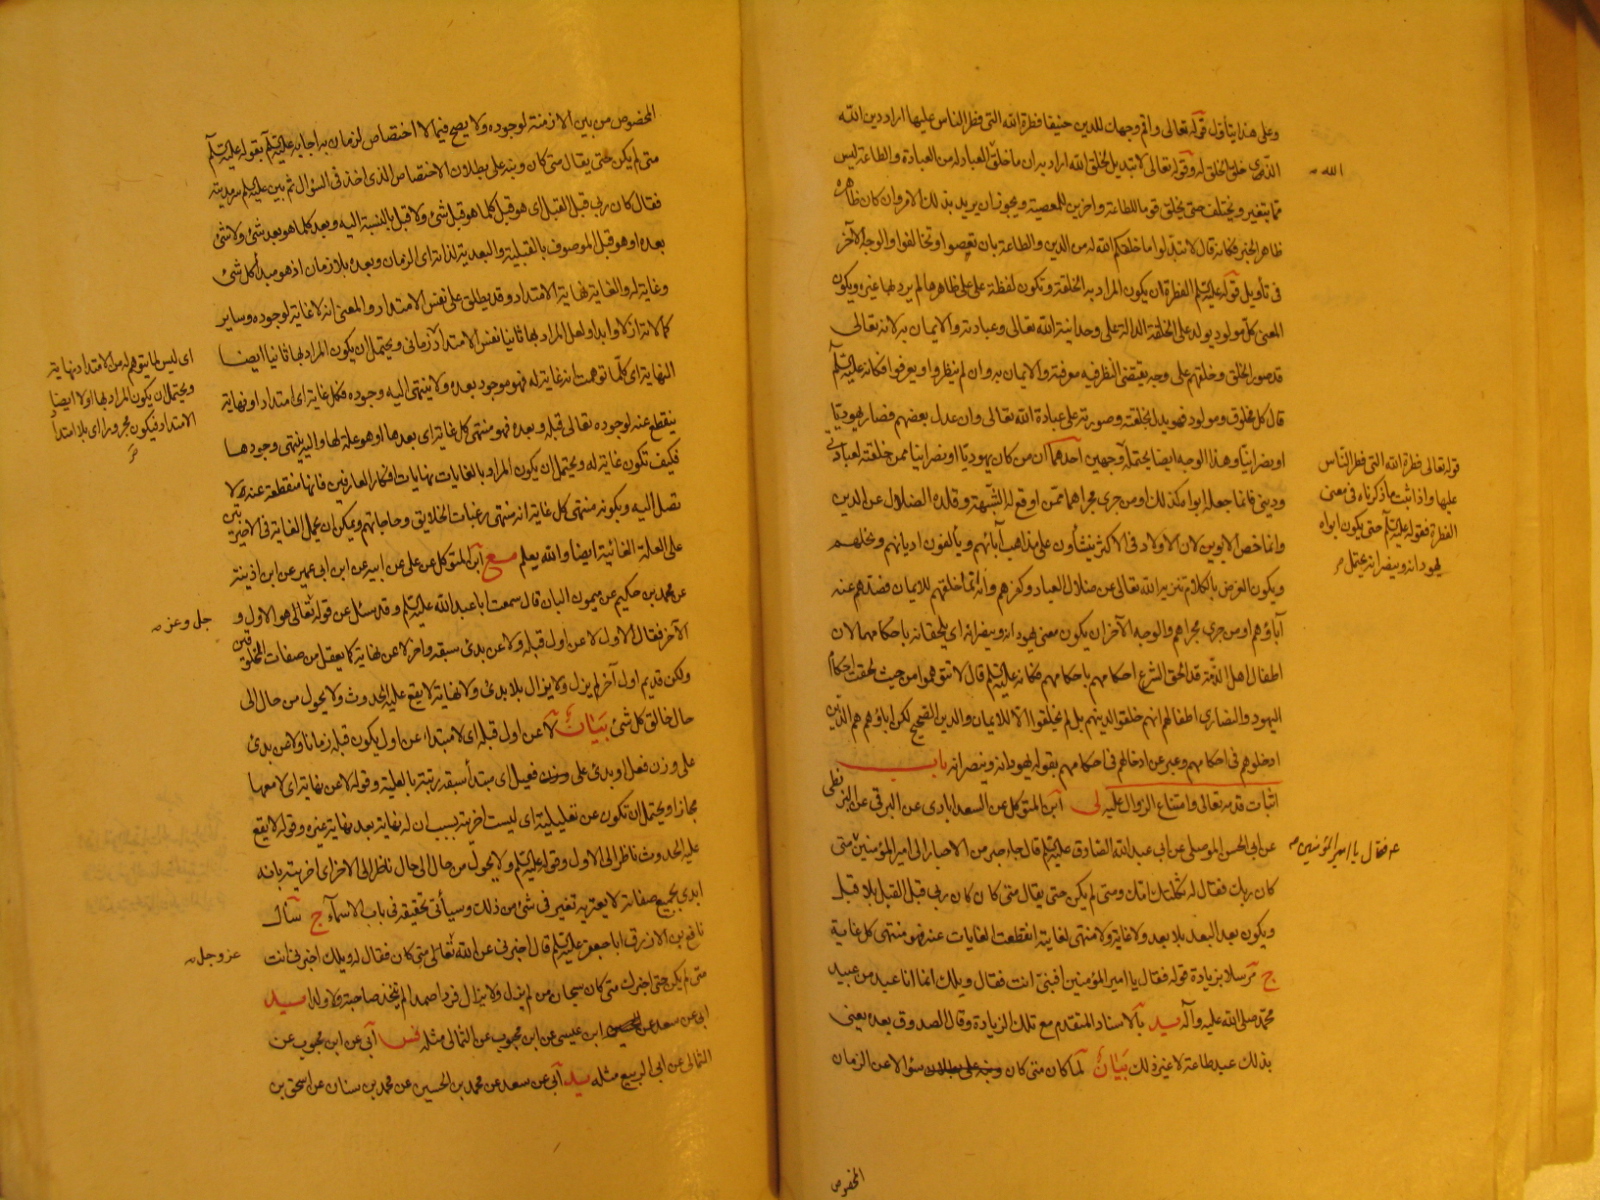 وعلى هذا يتأول قوله تعالى واقم وجهك للدين حنيفا فطرة الله التي فطر الناس عليها اراد دين الله
الذي خلق الخلق له وقوله تعالى لا تبديل لخلق الله اراد به ان ما خلق العباد له من العبادة والطاعة ليس
الله
مما يتغير ويختلف حتى يخلق قوما للطاعة واخرين للمعصية ويجوز ان يريد بذلك الامر وان كان ظاهره
ظاهر الخبر فكانه قال لا تبدلوا ما خلقكم الله له من الدين والطاعة بان تعصوا وتخالفوا والوجه الآخر
في تأويل قوله عليه السلم الفطرة ان يكون المراد به الخلقة وتكون لفظة على على ظاهرها لم يرد بها غيره ويكون
المعنى كل مولود يولد على الخلقة الدالة على وحدانية الله تعالى وعبادته والايمان به لانه تعالى
قد صور الخلق وخلقهم على وجه يقتضى النظر فيه معرفته والايمان به وان لم ينظروا ويعرفوا فكانه عليه السلم
قال كل مخلوق ومولود فهو يدل بخلقته وصورته على عبادة الله تعالى وان عدل بعضهم فصار يهوديا
او نصرانيا وهذا الوجه ايضا يحتمله وجهين احدهما ان من كان يهوديا او نصرانيا ممن خلقته لعبادتي
قوله تعالى فطرة الله التي فطر الناس
عليها واذا ثبت ما ذكرناه في معنى
الفطرة فقوله عليه السلم حتى يكون ابواه
يهودانه وينصرانه يحتمل
وديني فانما جعله ابواه كذلك او من جرى مجراهما ممن اوقع له الشبهة وقلده الضلال عن الدين
وانما خص الابوين لان الاولاد في الاكثر ينشأون على مذاهب آبائهم ويألفون اديانهم ونحلهم
ويكون الغرض بالكلام تنزيه الله تعالى عن ضلال العباد وكفرهم وانه انما خلقهم للايمان فصدهم عنه
آباؤهم او من جرى مجراهم والوجه الآخر ان يكون معنى يهودانه وينصرانه اي يلحقانه باحكامهما لان
اطفال اهل الذمة قد الحق الشرع احكامهم باحكامهم فكانه عليه السلم قال لا تتوهموا من حيث لحقت احكام
اليهود والنصارى اطفالهم انهم خلقوا لدينهم بل لم يخلقوا الا للايمان والدين الصحيح لكن اباؤهم هم الذين
ادخلوهم في احكامهم وعبر عن ادخالهم في احكامهم بقوله يهودانه وينصرانه باب
اثبات قدمه تعالى وامتناع الزوال عليه لى ابن المتوكل عن السعدابادي عن البرقي عن البزنطي
عن ابي الحسن الموصلي عن ابي عبد الله الصادق عليه السلم قال جاء حبر من الاحبار الى امير المؤمنين متى
فقال يا امير المؤمنين
كان ربك فقال له ثكلتك امك ومتى لم يكن حتى يقال متى كان كان ربي قبل القبل بلا قبل
ويكون بعد البعد بلا بعد ولا غاية ولا منتهى لغايته انقطعت الغايات عنده فهو منتهى كل غاية
ج مرسلا بزيادة قوله فقال يا امير المؤمنين افنبي انت فقال ويلك انما انا عبد من عبيد
محمد صلى الله عليه وآله يد بالاسناد المتقدم مع تلك الزيادة وقال الصدوق بعده يعني
بذلك عبد طاعة لا غير ذلك بيان لما كان متى كان سؤالا عن الزمان
المخصوص
المخصوص من بين الازمنة لوجوده ولا يصح فيما لا اختصاص لزمان به اجابه عليه السلم بقوله عليه السلم
متى لم يكن حتى يقال متى كان ونبه على بطلان الاختصاص الذي اخذ في السؤال ثم بين عليه السلم سرمديته
فقال كان ربي قبل القبل اى هو قبل كلما هو قبل شئ ولا قبل بالنسبة اليه وبعد كلما هو بعد شئ ولا شئ
بعده او هو قبل الموصوف بالقبلية والبعدية لذاته اى الزمان وبعده بلا زمان اذ هو مبدأ كل شئ
وغاية له والغاية نهاية الامتداد وقد يطلق على نفس الامتداد والمعنى انه لا غاية لوجوده وساير
كمالاته ازلا وابدا ولعل المراد بها ثانيا نفس الامتداد الزماني ويحتمل ان يكون المراد بها ثانيا ايضا
اى ليس لما يتوهم له من الامتداد نهاية
ويحتمل ان يكون المراد بها اولا ايضا
الامتداد فيكون مجرورا اى بلا امتداد
النهاية اى كلما توهمت انه غاية له فهو موجود بعده ولا ينتهى اليه وجوده فكل غاية اى امتداد او نهاية
ينقطع عنه لوجوده تعالى قبله وبعده فهو منتهى كل غاية اى بعدها او هو علة لها واليه ينتهى وجودها
فكيف تكون غاية له ويحتمل ان يكون المراد بالغايات نهايات افكار العارفين فانها منقطعة عنده لا
تصل اليه وبكونه منتهى كل غاية انه منتهى رغبات الخلايق وحاجاتهم ويمكن ان يحمل الغاية في الاخيرتين
على العلة الغائية ايضا والله يعلم مع ابن المتوكل عن على عن ابيه عن ابن ابي عمير عن ابن اذينة
عن محمد بن حكيم عن ميمون البان قال سمعت ابا عبد الله عليه السلم وقد سئل عن قوله تعالى هو الاول و
جل وعز
الآخر فقال الاول لا عن اول قبله ولا عن بدئ سبقه وآخر لا عن نهاية كما يعقل من صفات المخلوقين
ولكن قديم اول آخر لم يزل ولا يزال بلا بدئ ولا نهاية لا يقع عليه الحدوث ولا يحول من حال الى
حال خالق كل شئ بيان لا عن اول قبله اى لا مبتداء عن اول يكون قبله زمانا ولا عن بدئ
على وزن فعل او بدئ على وزن فعيل اى مبتدأ سبقه رتبة بالعلية وقوله لا عن نهاية اى لا معها
مجازا ويحتمل ان تكون عن تعليلية اى ليست اخريته بسبب ان له نهاية بعد نهاية غيره وقوله لا يقع
عليه الحدوث ناظر الى الاول وقوله عليه السلم ولا يحول من حال الى حال ناظر الى الاخر اى اخريته بانه
ابدي بجميع صفاته لا يعتريه تغير في شئ من ذلك وسيأتي تحقيقه في باب الاسماء ج سأل
نافع بن الازرق ابا جعفر عليه السلم قال اخبرني عن الله تعالى متى كان فقال له ويلك اخبرني انت
عز وجل
متى لم يكن حتى اخبرك متى كان سبحان من لم يزل ولا يزال فردا صمدا لم يتخذ صاحبة ولا ولدا يد
ابي عن سعد عن ابن عيسى عن ابن محبوب عن الثمالي مثله فس ابي عن ابن محبوب عن
الثمالي عن ابي الربيع مثله يد ابي عن سعد عن محمد بن الحسين عن محمد بن سنان عن اسحق بن